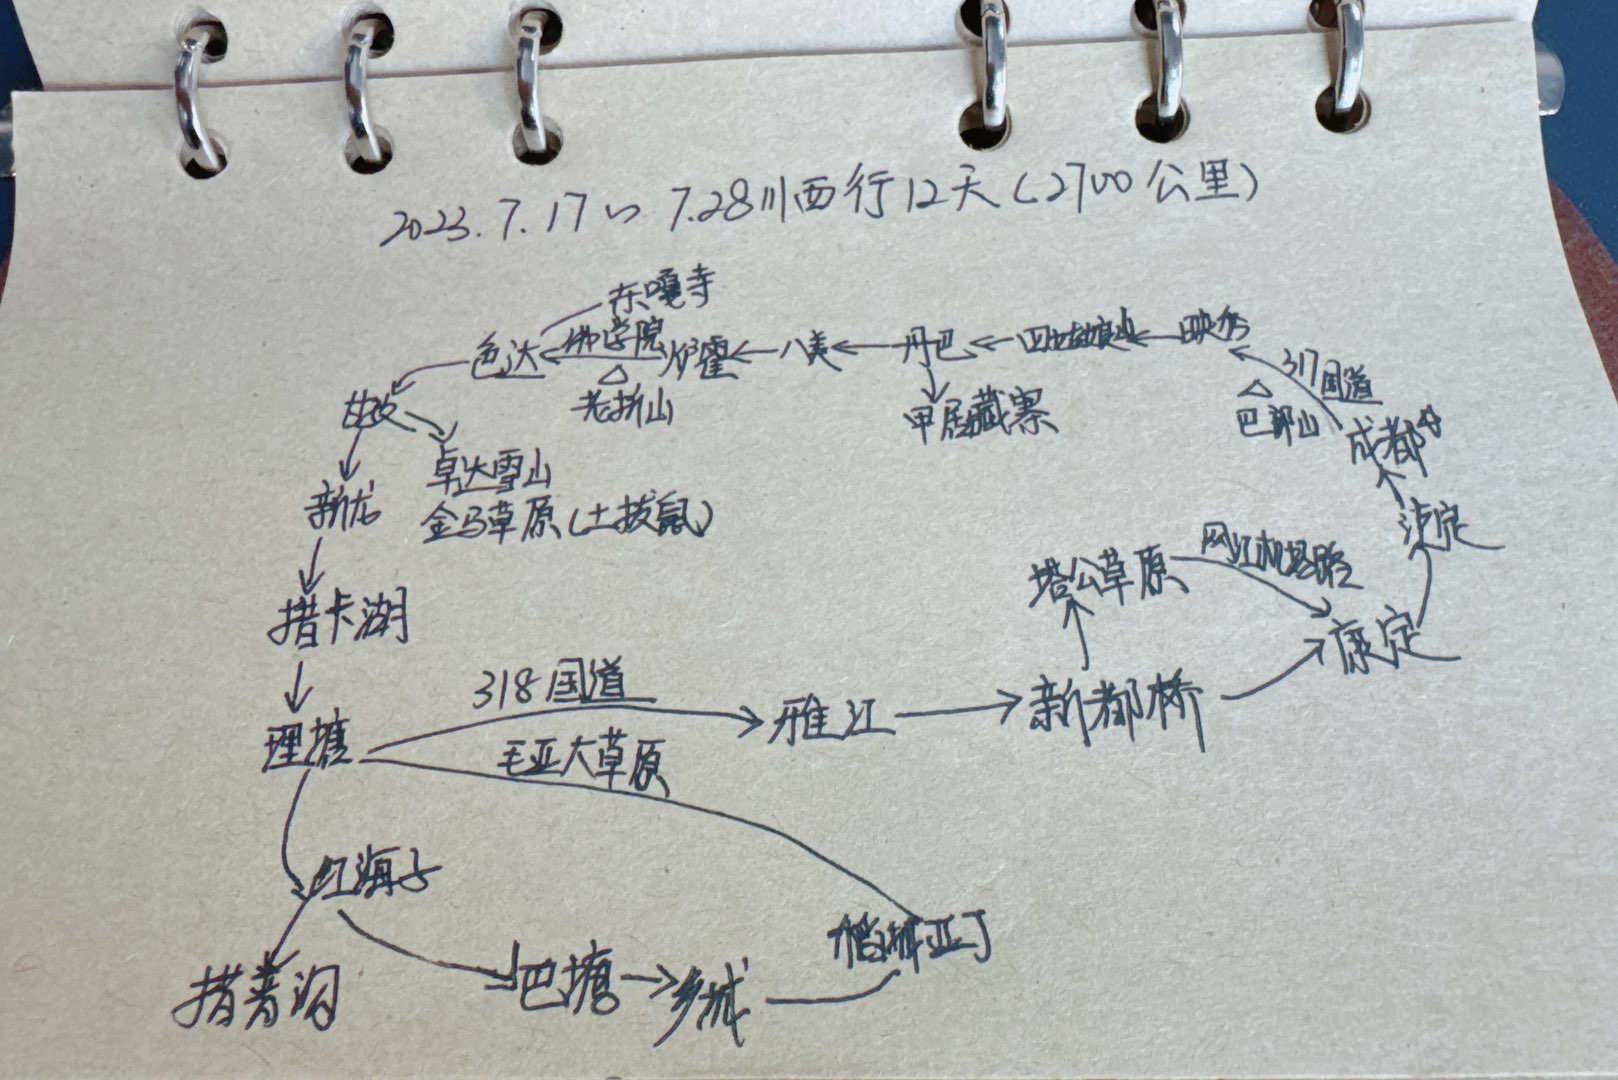 2023.7.17~7.28川西行12天(2700公里)
东嘎寺
色达
佛学院
炉霍
八美
丹巴
四姑娘山
映秀
317国道
老折山
甲居藏寨
巴郎山
成都
甘孜
卓达雪山
金马草原(土拨鼠)
新龙
泸定
塔公草原
网红机场路
措卡湖
康定
318国道
雅江
新都桥
理塘
毛亚大草原
红海子
稻城亚丁
措普沟
巴塘
乡城